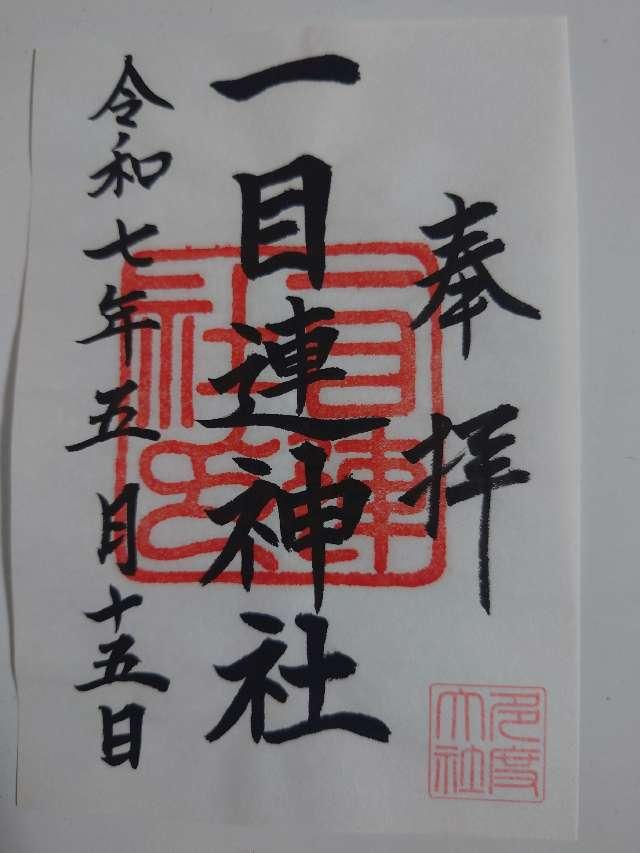 奉拝
一目連神社
令和七年五月十五日
多度
大社